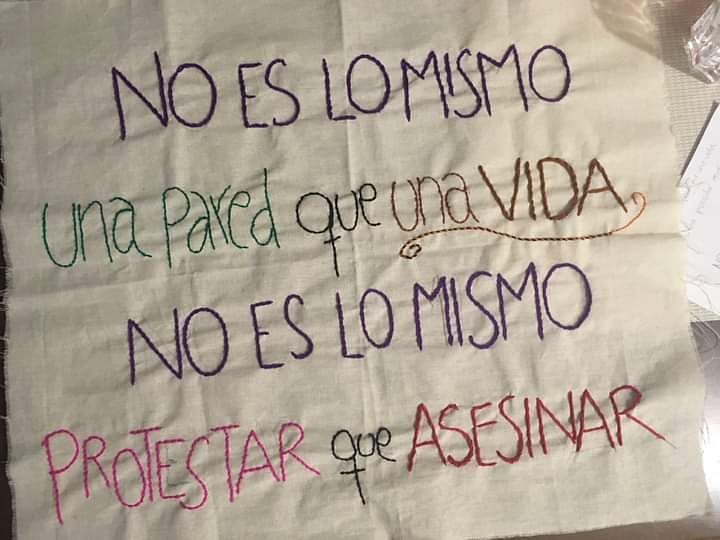 NO ES LO MISMO
una Pared que una VIDA,
NO ES LO MISMO
PROTESTAR que ASESINAR